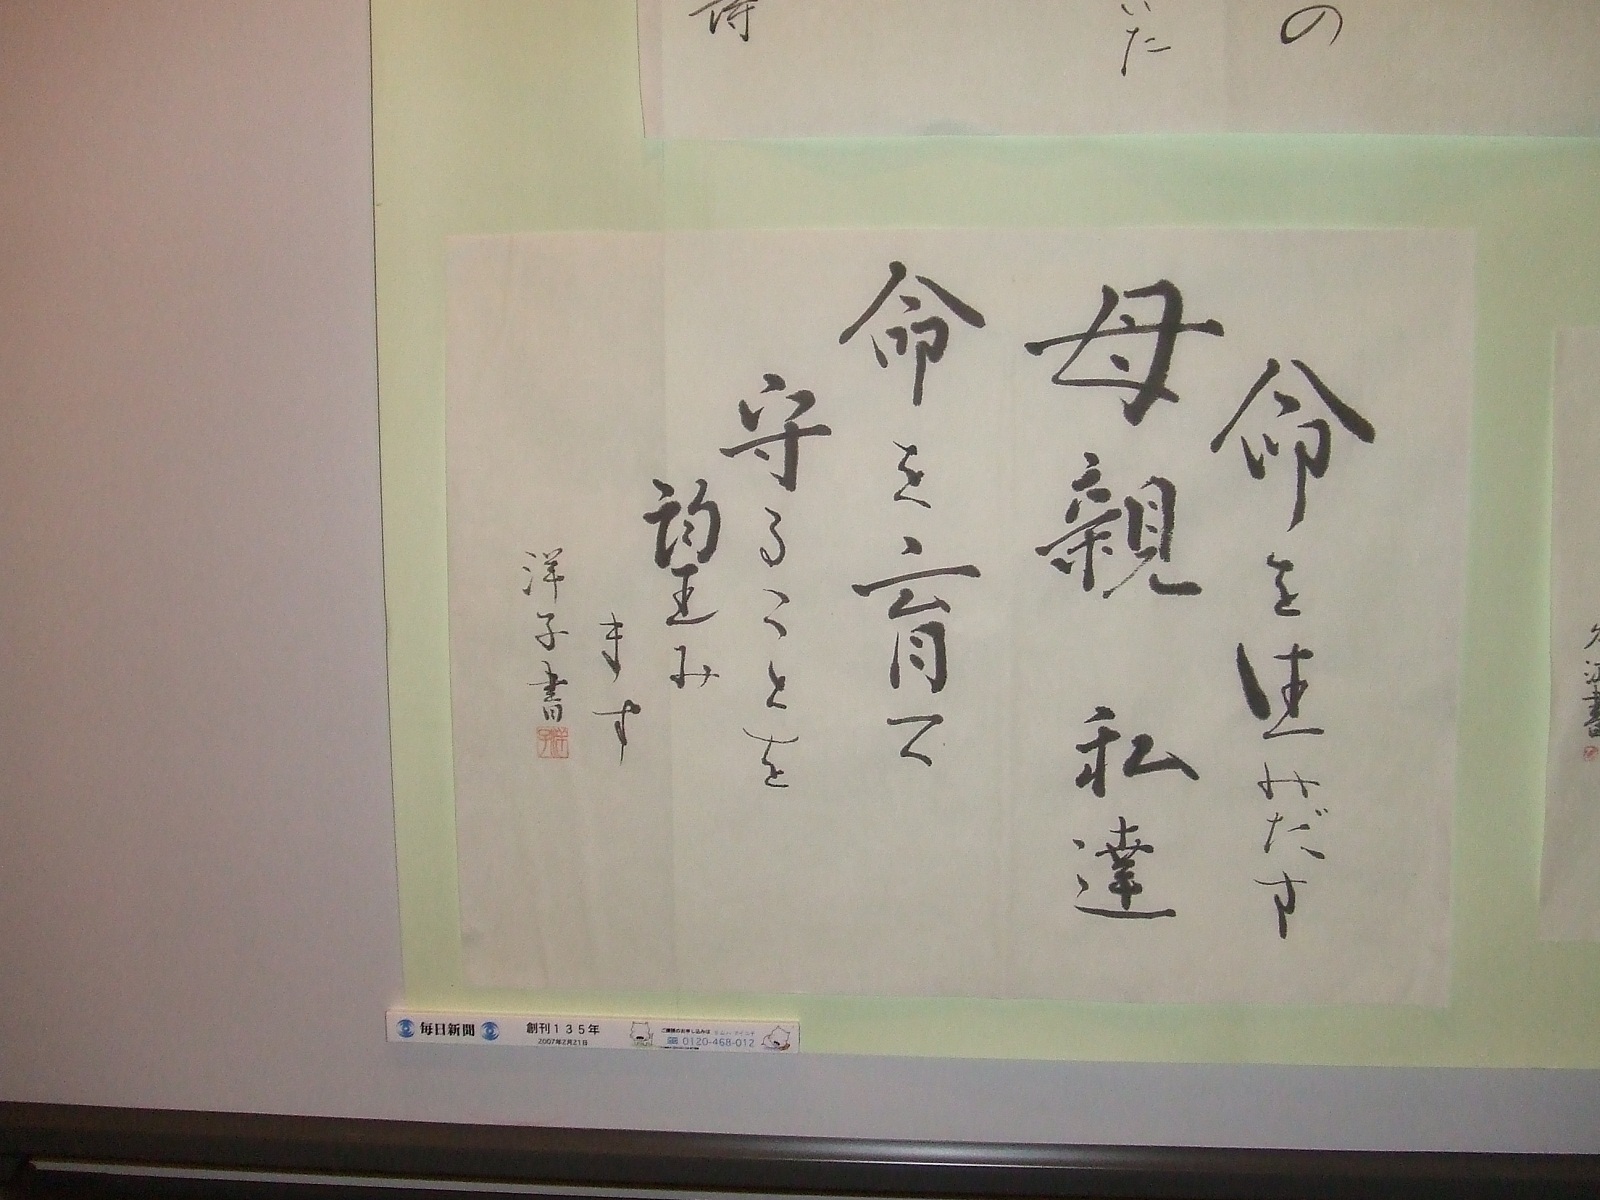 の
いた
詩
命を生みだす
母親 私達
命を育て
守ることを
望み
ます
洋子書
洋子
江書
毎日新聞
創刊135年
2007年2月21日
ご購読のお申し込みは
0120-468-012